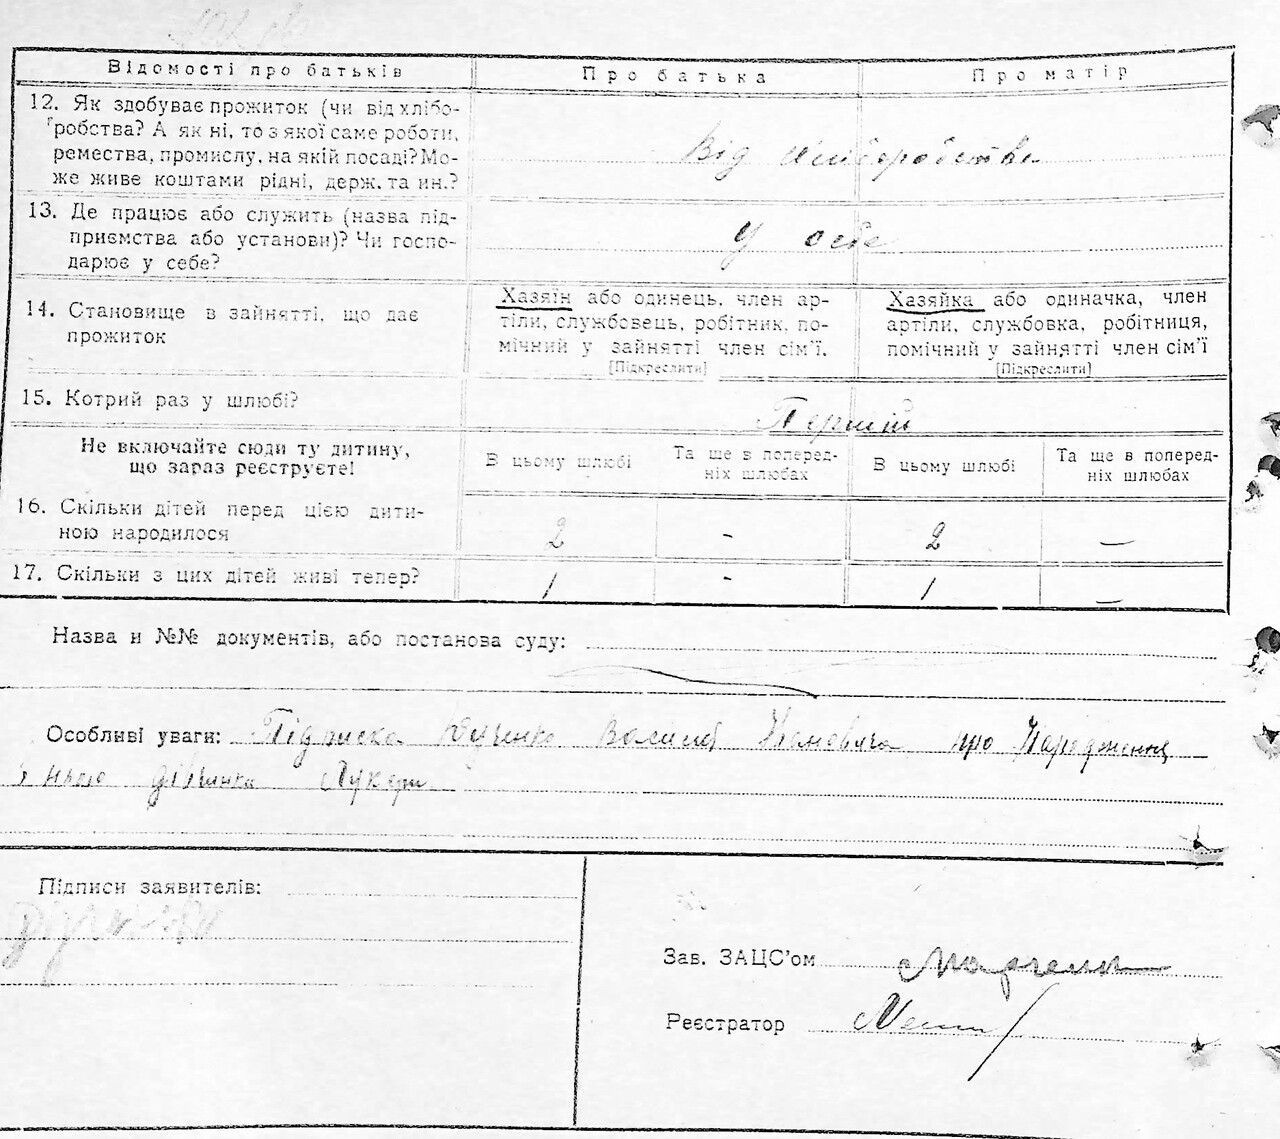 Відомості про батьків Про батька Про матір
12. Як здобуває прожиток (чи від хлібо-
робства? А як ні, то з якої саме роботи,
ремества, промислу, на якій посаді? Мо-
же живе коштами рідні, держ. та ин.?
Від хліборобства
13. Де працює або служить (назва під-
приємства або установи)? Чи госпо-
дарює у себе?
У себе
14. Становище в зайнятті, що дає
прожиток
Хазяїн або одинець, член ар-
тіли, службовець, робітник, по-
мічний у зайнятті член сім'ї.
[Підкреслити]
Хазяйка або одиначка, член
артіли, службовка, робітниця,
помічний у зайнятті член сім'ї
[Підкреслити]
15. Котрий раз у шлюбі?
Перший
Не включайте сюди ту дитину,
що зараз реєструєте!
В цьому шлюбі
Та ще в поперед-
ніх шлюбах
В цьому шлюбі
Та ще в поперед-
ніх шлюбах
16. Скільки дітей перед цією дити-
ною народилося
2 - 2 —
17. Скільки з цих дітей живі тепер?
1 - 1 —
Назва и №№ документів, або постанова суду:
Особливі уваги: Підписка Василя про Народження
дівчинки Лукери
Підписи заявителів:
Зав. ЗАЦС'ом Марченко
Реєстратор